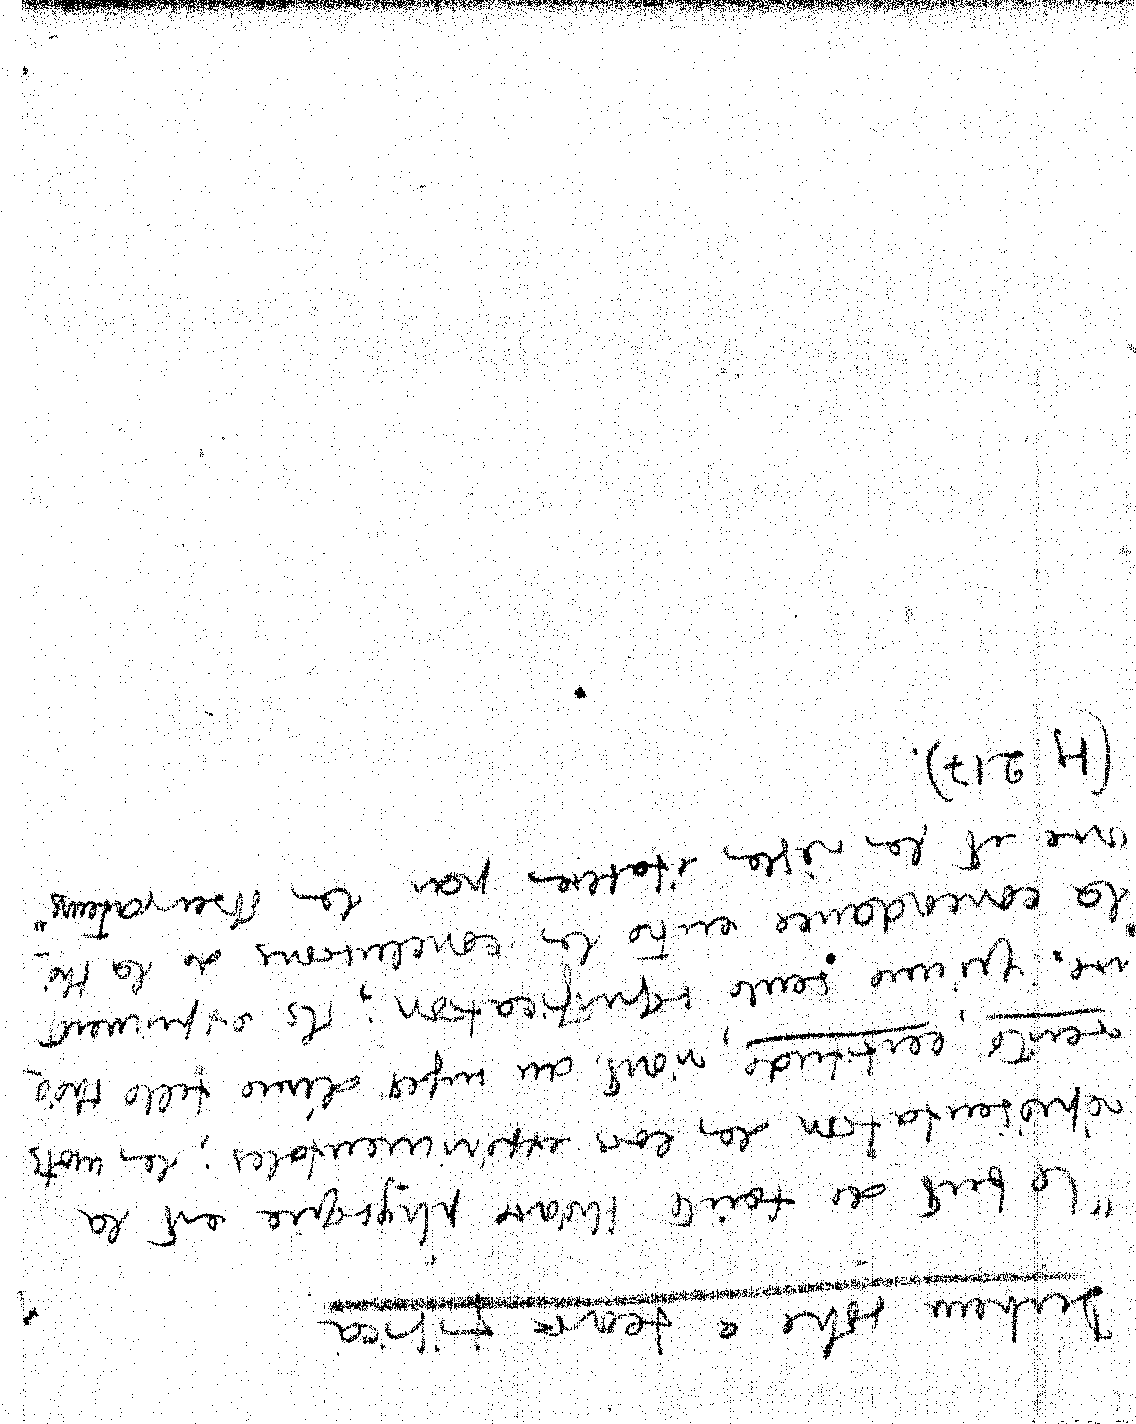 Duhem sobre a teoria física
"Le but de toute théorie physique est la
représentation des lois expérimentales; les mots
vérité, certitude, n'ont au sujet d'une telle théo-
rie, qu'une seule signification; ils expriment
la concordance entre les conclusions de la thé-
orie et les règles établies par les observateurs"
(H 217).